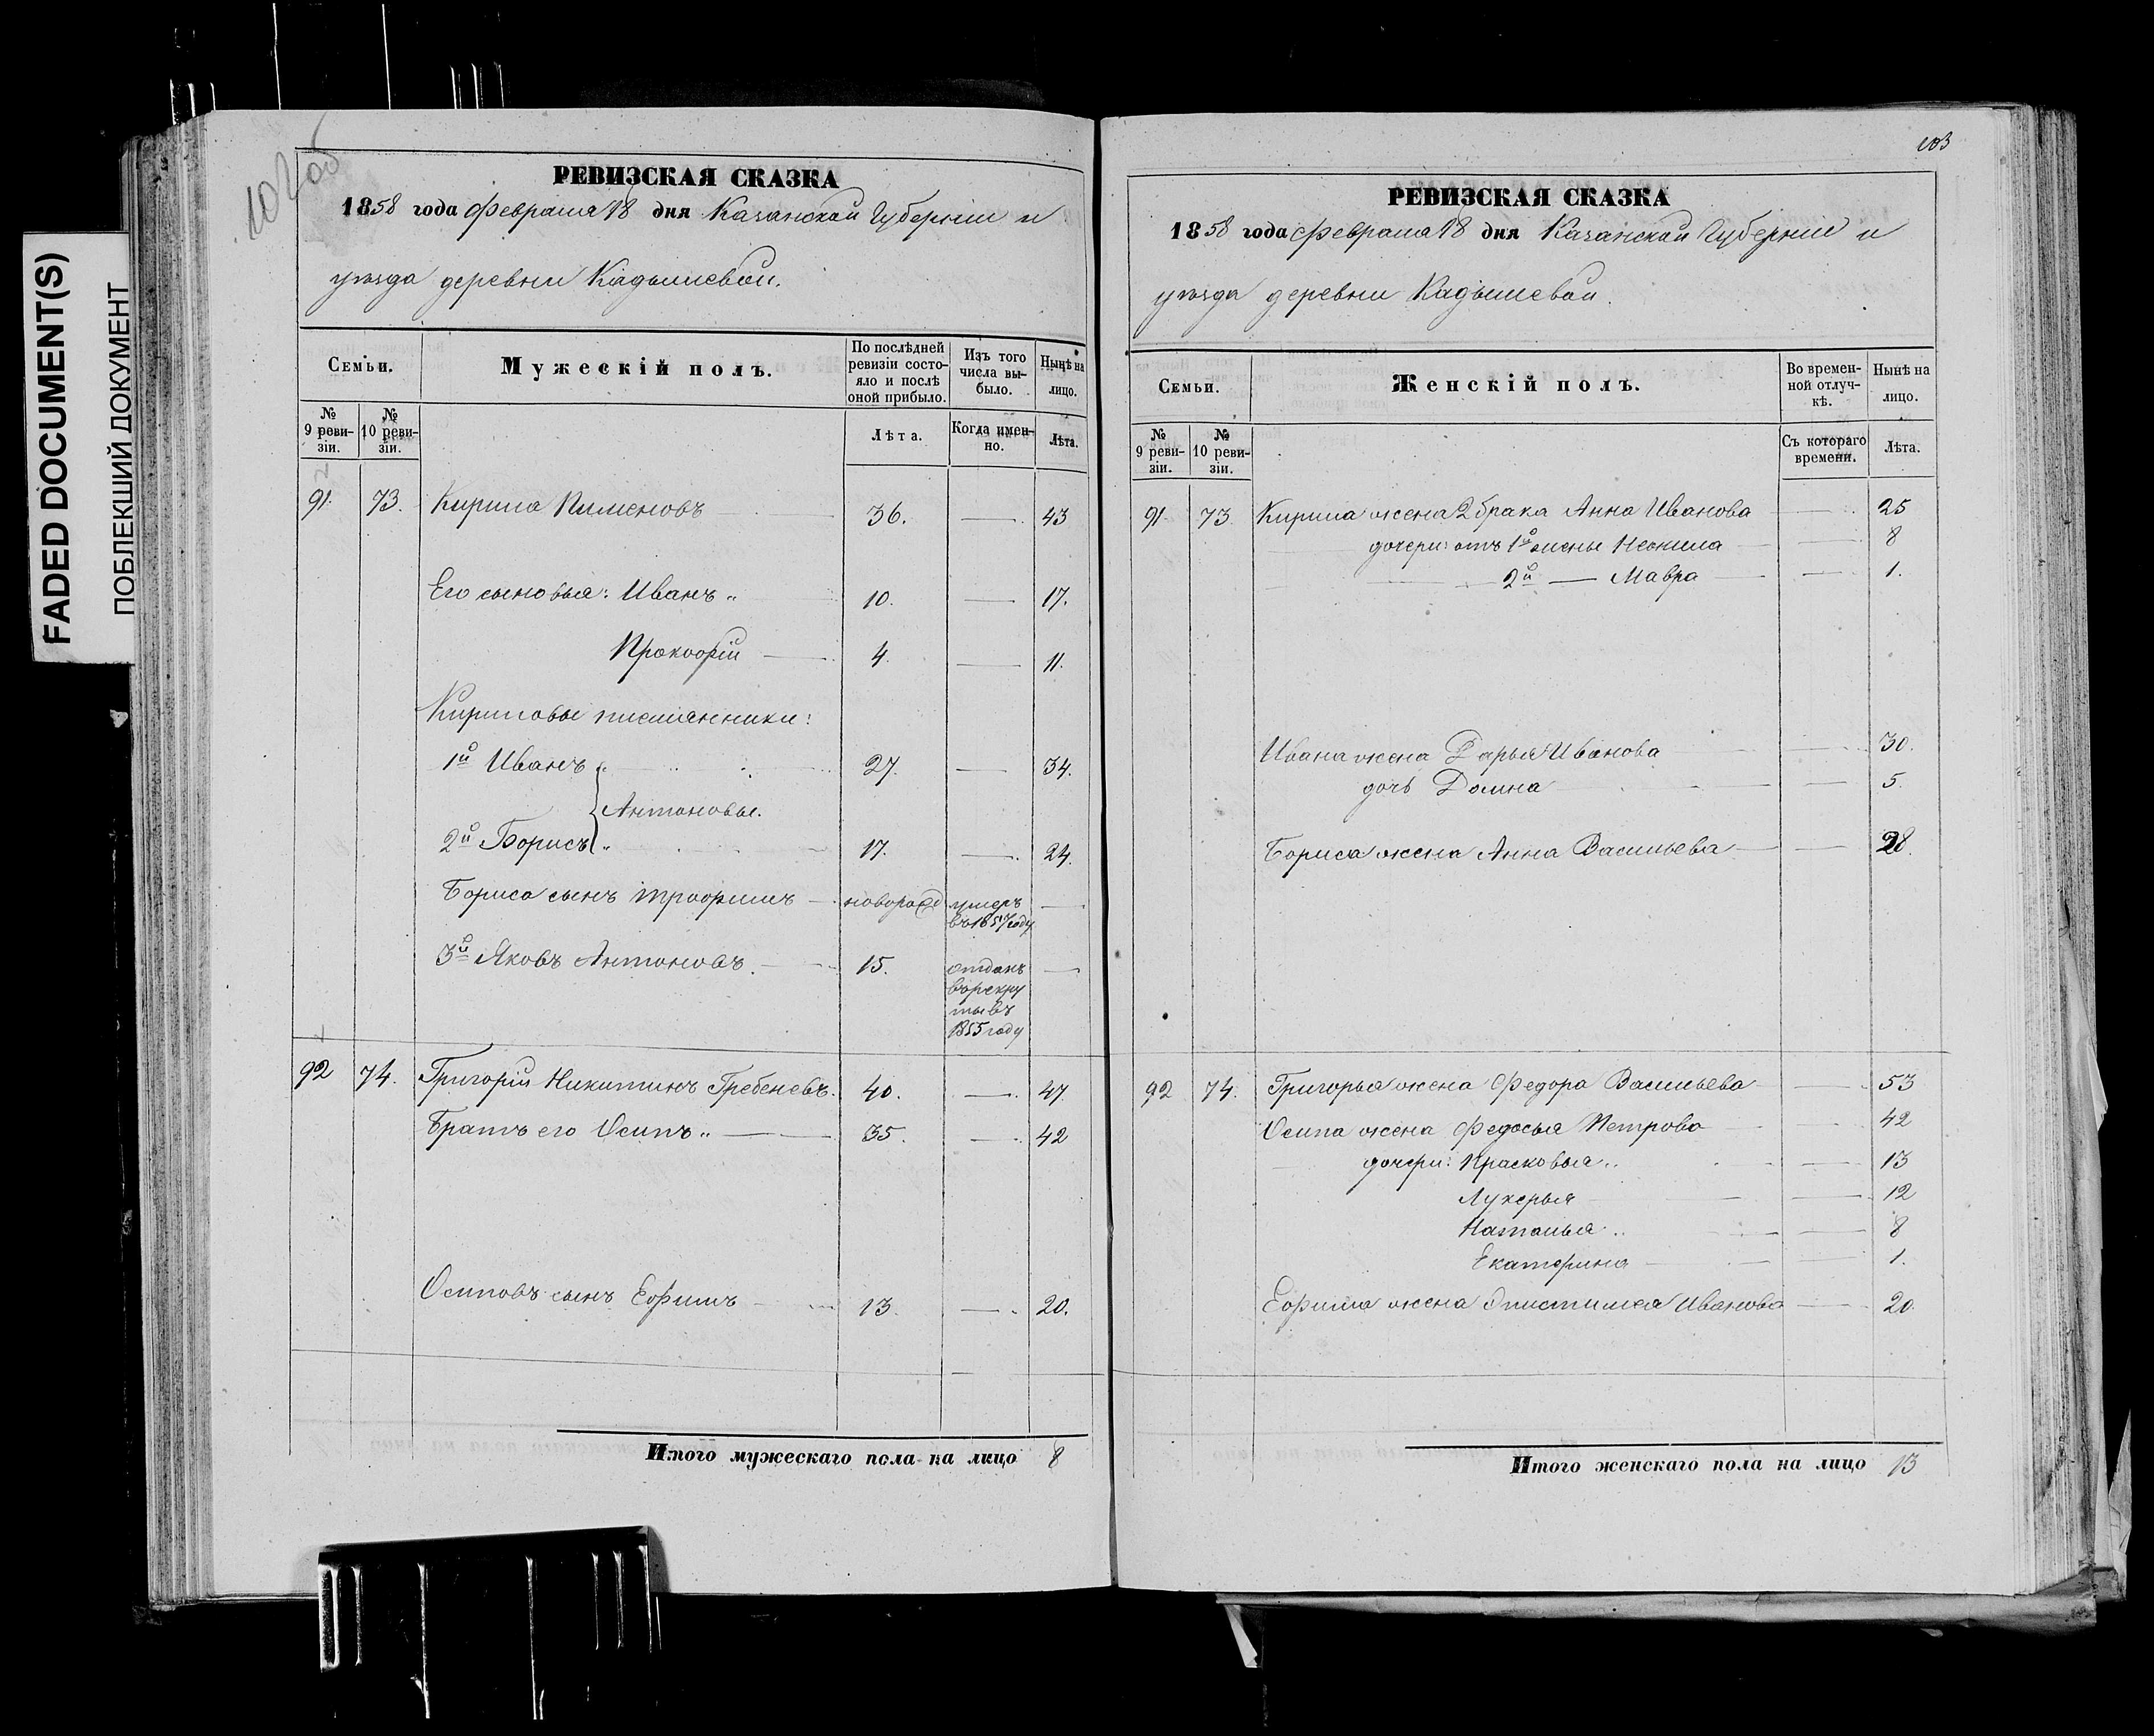 FADED DOCUMENT(S)
ПОБЛЕКШИЙ ДОКУМЕНТ
102 об
РЕВИЗСКАЯ СКАЗКА
1858 года Февраля 18 дня Казанской Губерніи и
уѣзда деревни Кадышевой.
Семьи.
Мужескій полъ.
По послѣдней ревизіи состояло и послѣ оной прибыло.
Изъ того числа выбыло.
Нынѣ на лицо.
№ 9 ревизіи.
№ 10 ревизіи.
Лѣта.
Когда именно.
Лѣта.
91. 73. Кирила Пименовъ 36. — 43
Его сыновья: Иванъ „ 10. — 17.
Прокофій — 4. — 11.
Кириловы племянники:
1й Иванъ 27. — 34.
Антоновы.
2й Борисъ „ 17. — 24.
Бориса сынъ Трофимъ — новорож умеръ въ 1857 году —
3й Яковъ Антоновъ. — 15. отданъ
въ рекру
ты въ
1855 году
92 74. Григорій Никитинъ Гребеневъ. 40. — 47
Братъ его Осипъ „ — 35. — 42
Осиповъ сынъ Ефимъ — 13. — 20.
Итого мужескаго пола на лицо 8
103
РЕВИЗСКАЯ СКАЗКА
1858 года Февраля 18 дня Казанской Губерніи и
уѣзда деревни Кадышевой.
Семьи.
Женскій полъ.
Во временной отлучкѣ.
Нынѣ на лицо.
№ 9 ревизіи.
№ 10 ревизіи.
Съ котораго времени.
Лѣта.
91 73 Кирила жена 2 брака Анна Иванова — 25
дочери: отъ 1й жены Неонила — 8
2й — Мавра — 1.
Ивана жена Дарья Иванова — 30.
дочь Домна — 5.
Бориса жена Анна Васильева — 28.
92 74. Григорья жена Федора Васильева — 53
Осипа жена Федосья Петрова — 42
дочери: Прасковья „ — 13
Лукерья — 12
Наталья „ — 8
Екатерина — 1.
Ефима жена Епистимея Иванова — 20
Итого женскаго пола на лицо 13